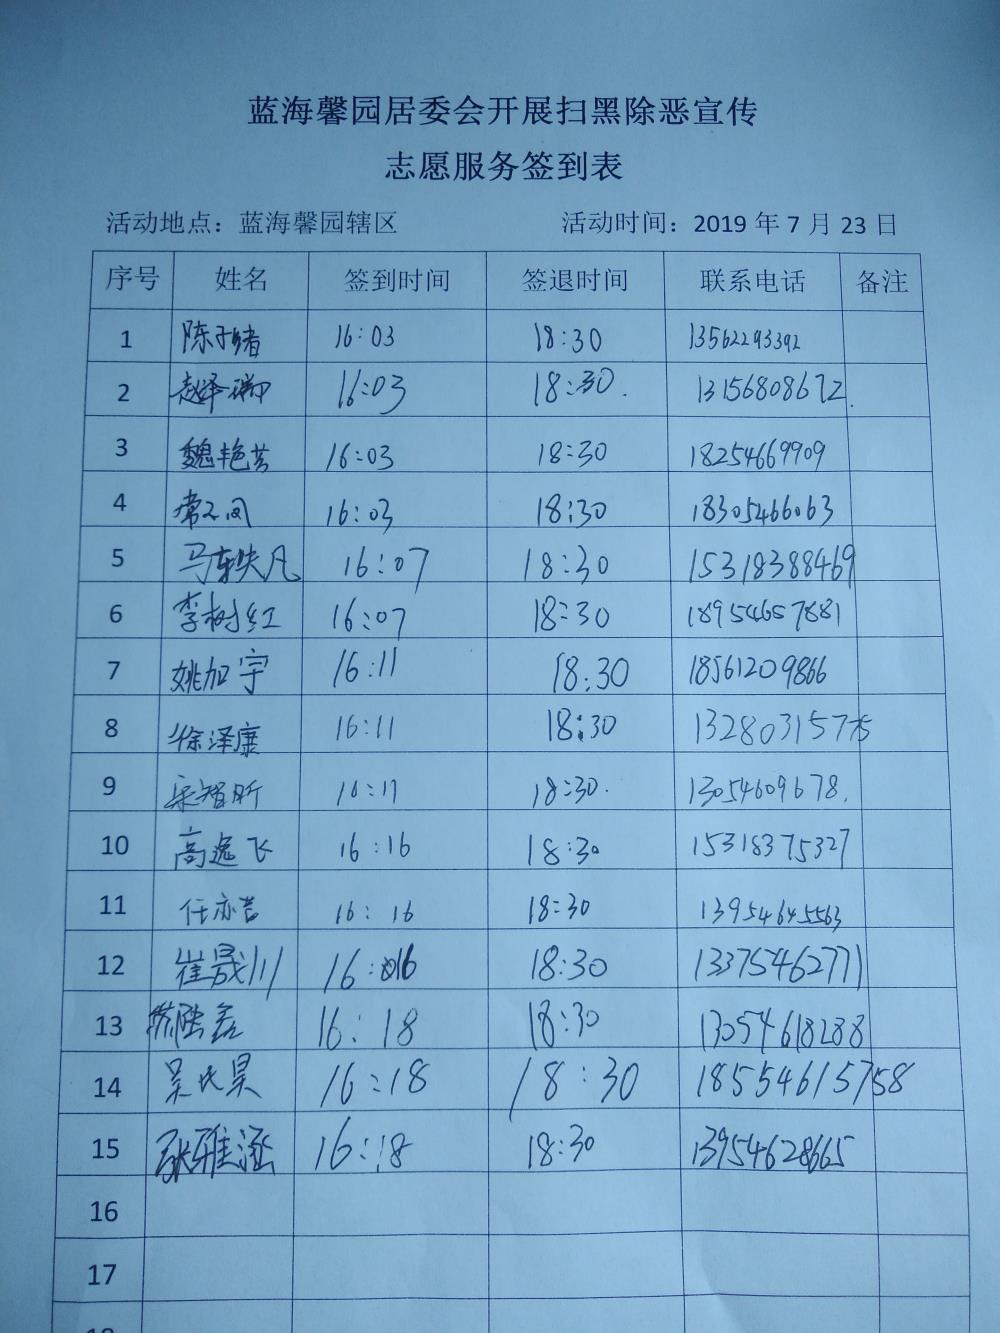 蓝海馨园居委会开展扫黑除恶宣传
志愿服务签到表
活动地点：蓝海馨园辖区 活动时间：2019 年 7 月 23 日
序号 姓名 签到时间 签退时间 联系电话 备注
1 陈子绪 16:03 18:30 13562293392
2 赵泽瑞 16:03 18:30. 13156808672.
3 魏艳芸 16:03 18:30 18254669909
4 常 凤 16:03 18:30 18305466063
5 马轶凡 16:07 18:30 15318388469
6 李树红 16:07 18:30 18954657881
7 姚加宇 16:11 18:30 18561209866
8 徐泽康 16:11 18:30 13280315775
9 梁智昕 16:11 18:30. 13054609678.
10 高逸飞 16:16 18:30 15318375327
11 任亦 16:16 18:30 13954645563
12 崔晟川 16:16 18:30 13375462771
13 16:18 18:30 13054618288
14 昊 16:18 18:30 18554615758
15 张雅涵 16:18 18:30 13954628665
16
17